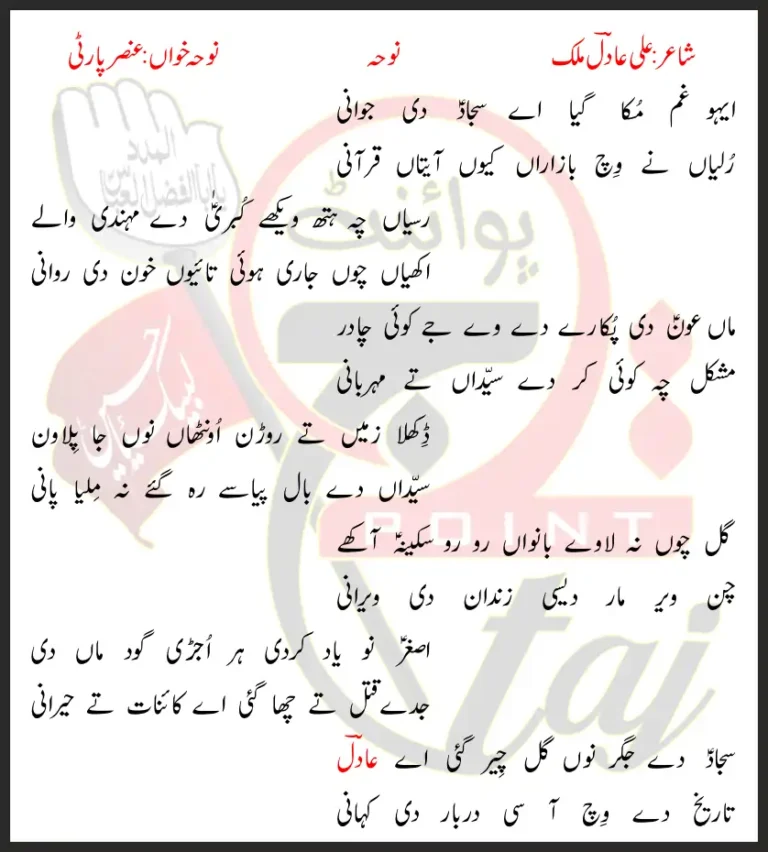 شاعر:علی عادلؔ ملک نوحہ نوحہ خواں:عنصر پارٹی
ایہو غم مُکا گیا اے سجادؑ دی جوانی
رُلیاں نے وِچ بازاراں کیوں آیتاں قرآنی
رسیاں چہ ہتھ ویکھے کُبریٰؑ دے مہندی والے
اکھیاں چوں جاری ہوئی تائیوں خون دی روانی
ماں عونؑ دی پُکارے دے وے جے کوئی چادر
مشکل چہ کوئی کر دے سیّداں تے مہربانی
ڈِکھلا زمیں تے روڑن اُونٹھاں نوں جا پِلاون
سیّداں دے بال پیاسے رہ گئے نہ مِلیا پانی
گل چوں نہ لاوے بانواں رو رو سکینہؑ آکھے
چن ویر مار دیسی زندان دی ویرانی
اصغرؑ نو یاد کردی ہر اُجڑی گود ماں دی
جدے قتل تے چھا گئی اے کائنات تے حیرانی
سجادؑ دے جگر نوں گل چِیر گئی اے عادلؔ
تاریخ دے وِچ آ سی دربار دی کہانی
المدد
یا ابالفضل العباس
لبیک یا حسین
پوائنٹ
تاج
POINT
taj